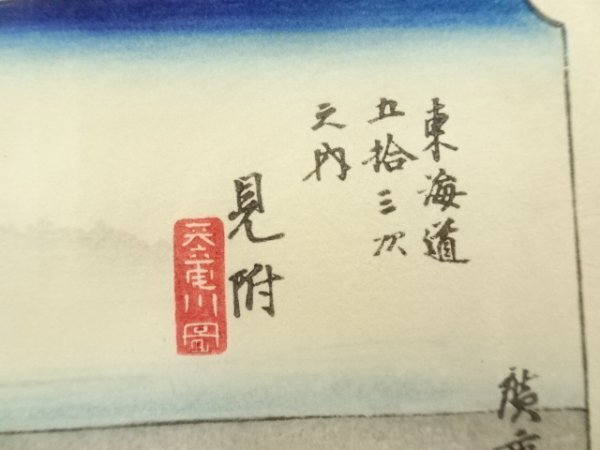 東海道
五拾三次
之内
見附
天竜川圖
廣重